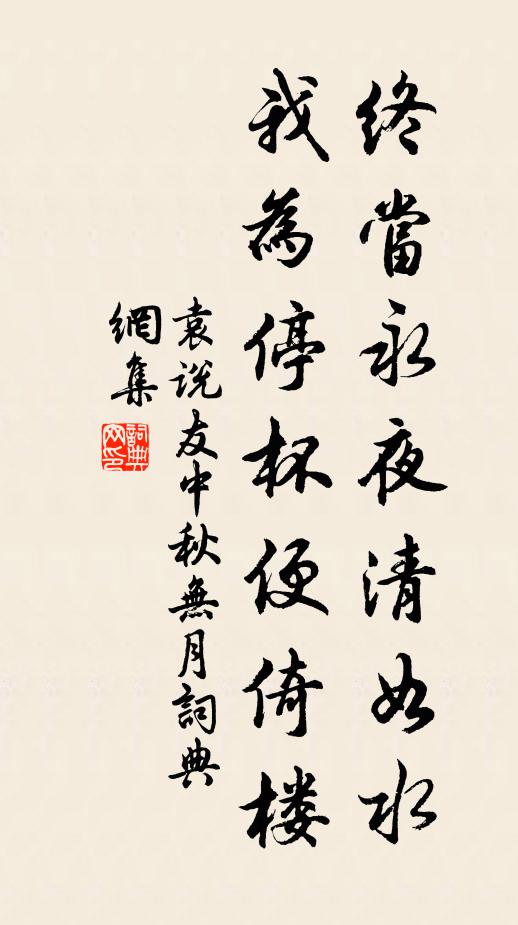 終當永夜清如水
我為停杯便倚楼
袁说友中秋無月詞典
網集
詞典
网印